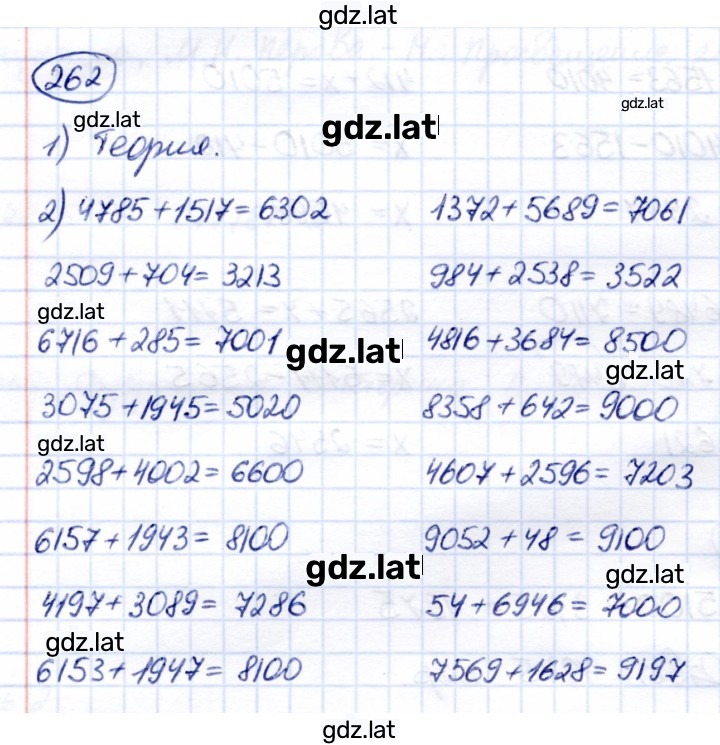 gdz.lat
262
gdz.lat
gdz.lat
gdz.lat
1) Теория.
2) 4785+1517=6302 1372+5689=7061
2509+704=3213 984+2538=3522
gdz.lat
6716+285=7001 4816+3684=8500
gdz.lat
gdz.lat
3075+1945=5020 8358+642=9000
gdz.lat
2598+4002=6600 4607+2596=7203
6157+1943=8100 9052+48=9100
gdz.lat
gdz.lat
4197+3089=7286 54+6946=7000
gdz.lat
6153+1947=8100 7569+1628=9197
gdz.lat